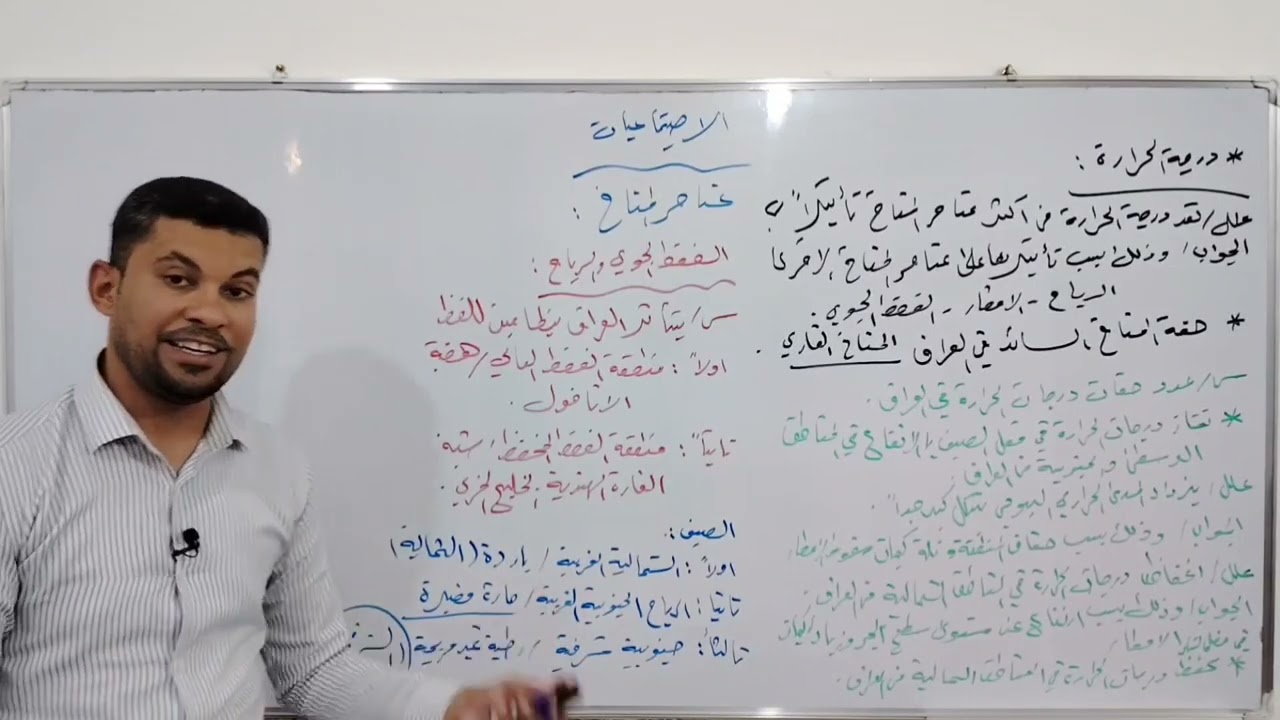 * درجة الحرارة :
علل / تعد درجة الحرارة من اكثر عناصر المناخ تأثيراً
الجواب / وذلك بسبب تأثيرها على عناصر المناخ الاخرى
الرياح - الامطار - الضغط الجوي .
* صفة المناخ السائد في العراق المناخ القاري .
س / عدد صفات درجات الحرارة في العراق .
* تمتاز درجات الحرارة في فصل الصيف بالارتفاع في المناطق
الوسطى والجنوبية من العراق
علل / يزداد المدى الحراري اليومي بشكل كبير جداً
الجواب / وذلك بسبب صفاء وقلة كميات سقوط الامطار
علل / انخفاض درجات الحرارة في المناطق الشمالية من العراق
الجواب / وذلك بسبب ارتفاع عن مستوى سطح البحر وزيادة كميات
الامطار
* تنخفض درجات الحرارة في المناطق الشمالية من العراق .
الاجتماعيات
عناصر المناخ :
الضغط الجوي والرياح :
س / يتأثر العراق بنظامين للضغط
اولاً : منطقة الضغط العالي / هضبة
الاناضول .
ثانياً : منطقة الضغط المنخفض / شبه
القارة الهندية والخليج العربي .
الصيف :
اولاً : الشمالية الغربية / باردة ( الشمالية )
ثانيا : الرياح الجنوبية الغربية / حارة ومغبرة
ثالثاً : جنوبية شرقية / رطبة غير مريحة